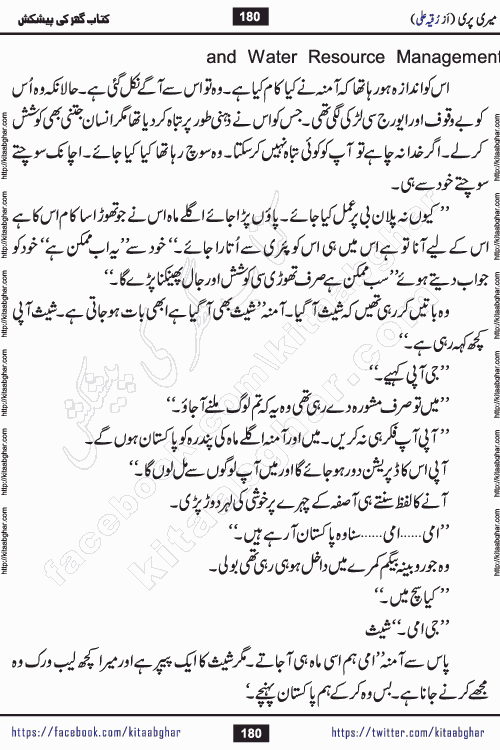 میری پری (از رُقیہ علی)
180
کتاب گھر کی پیشکش
and Water Resource Management
اس کو اندازہ ہو رہا تھا کہ آمنہ نے کیا کام کیا ہے۔ وہ تو اس سے آگے نکل گئی ہے۔ حالانکہ وہ اُس
کو بے وقوف اور ایورج سی لڑکی لگی تھی۔ جس کو اس نے ذہنی طور پر تباہ کر دیا تھا مگر انسان جتنی بھی کوشش
کر لے۔ اگر خدا نہ چاہے تو آپ کو کوئی تباہ نہیں کر سکتا۔ وہ سوچ رہا تھا کیا کیا جائے۔ اچانک سوچتے
سوچتے خود سے ہی۔
’’کیوں نہ پلان بی پر عمل کیا جائے۔ پاؤں پڑا جائے اگلے ماہ اس نے جو تھوڑا سا کام اس کا ہے
اس کے لیے آنا تو ہے اس میں ہی اس کو پٹری سے اُتارا جائے۔‘‘ خود سے ’’یہ اب ممکن ہے‘‘ خود کو
جواب دیتے ہوئے ’’سب ممکن ہے صرف تھوڑی سی کوشش اور جال پھینکنا پڑے گا۔‘‘
وہ باتیں کر رہی تھیں کہ شیث آ گیا۔ آمنہ ’’شیث بھی آ گیا ہے ابھی بات ہو جاتی ہے۔ شیث آپی
کچھ کہہ رہی ہے۔‘‘
’’جی آپی کہیے۔‘‘
’’میں تو صرف مشورہ دے رہی تھی وہ یہ کہ تم لوگ ملنے آ جاؤ۔‘‘
’’آپی آپ فکر ہی نہ کریں۔ میں اور آمنہ اگلے ماہ کی پندرہ کو پاکستان ہوں گے۔
آپی اس کا ڈپریشن دور ہو جائے گا اور میں آپ لوگوں سے مل لوں گا۔‘‘
آنے کا لفظ سنتے ہی آصفہ کے چہرے پر خوشی کی لہر دوڑ پڑی۔
’’امی......امی......سنا وہ پاکستان آ رہے ہیں۔‘‘
وہ جو روبینہ بیگم کمرے میں داخل ہو ہی رہی تھی بولی۔
’’کیا سچ میں۔‘‘
’’جی امی۔‘‘ شیث
پاس سے آمنہ ’’امی ہم اسی ماہ ہی آ جاتے۔ مگر شیث کا ایک پیپر ہے اور میرا کچھ لیب ورک وہ
مجھے کرنے جانا ہے۔ بس وہ کر کے ہم پاکستان پہنچے۔‘
https://facebook.com/kitaabghar
180
https://twitter.com/kitaabghar
http://kitaabghar.com
http://kitaabghar.com
http://kitaabghar.com
http://kitaabghar.com
http://kitaabghar.com
http://kitaabghar.com
کتاب گھر کی پیشکش
facebook.com/kitaabghar
kitaabghar.com